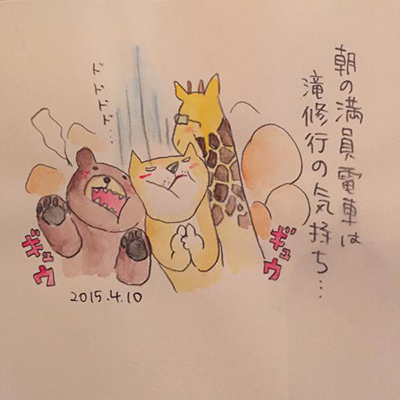 朝の満員電車は
滝修行の気持ち…
ドドドド…
ギュウ
ギュウ
2015.4.10